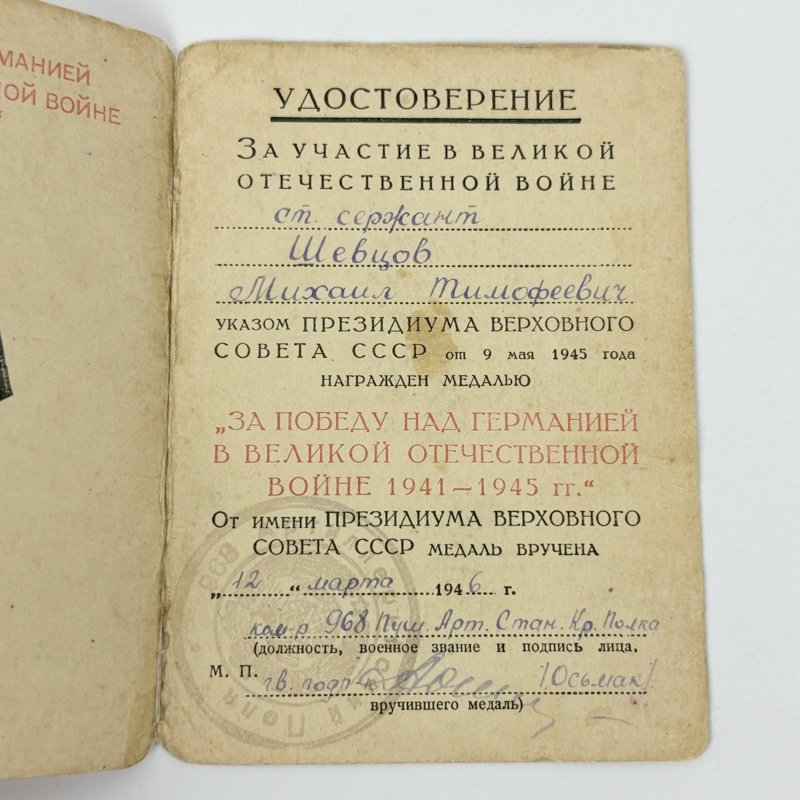 МАНИЕЙ
ОЙ ВОЙНЕ
УДОСТОВЕРЕНИЕ
ЗА УЧАСТИЕ В ВЕЛИКОЙ
ОТЕЧЕСТВЕННОЙ ВОЙНЕ
ст. сержант
Шевцов
Михаил Тимофеевич
УКАЗОМ ПРЕЗИДИУМА ВЕРХОВНОГО
СОВЕТА СССР от 9 мая 1945 года
НАГРАЖДЕН МЕДАЛЬЮ
„ЗА ПОБЕДУ НАД ГЕРМАНИЕЙ
В ВЕЛИКОЙ ОТЕЧЕСТВЕННОЙ
ВОЙНЕ 1941—1945 гг.“
ОТ ИМЕНИ ПРЕЗИДИУМА ВЕРХОВНОГО
СОВЕТА СССР МЕДАЛЬ ВРУЧЕНА
„12“ марта 1946 г.
ком-р 968 Пуш. Арт. Стан. Кр. Полка
(должность, военное звание и подпись лица,
М. П. гв. подп-к /Осьмак/
вручившего медаль)